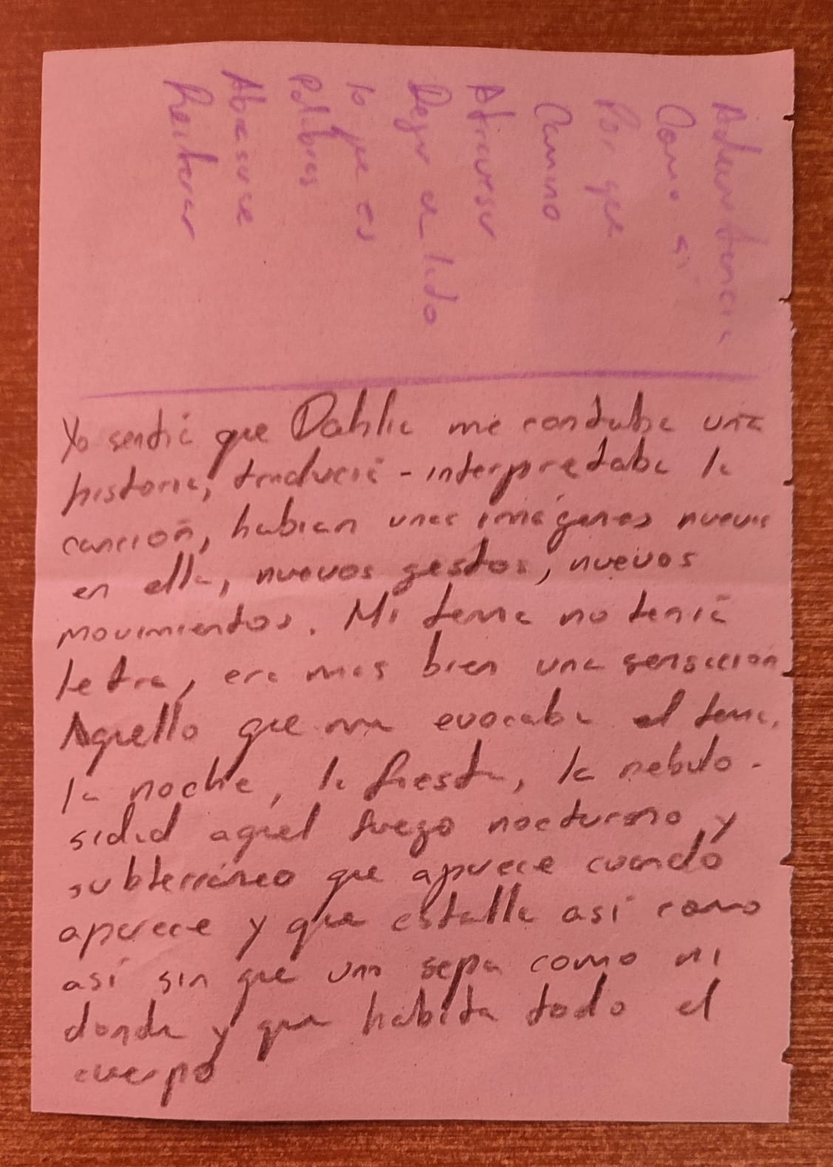 Advertencia
Como si
Por que
Camino
Atravesar
Dejar de lado
lo que es
Palabras
Abrazar
Reiterar
Yo sentía que Dahlia me contaba una
historia, traducía - interpretaba la
canción, habían unas imágenes nuevas
en ella, nuevos gestos, nuevos
movimientos. Mi tema no tenía
letra, era mas bien una sensación
Aquello que me evocaba el tema,
la noche, la fiesta, la nebulo-
sidad aquel fuego nocturno y
subterráneo que aparece cuando
aparece y que estalla así como
así sin que uno sepa como ni
donde y que habita todo el
cuerpo